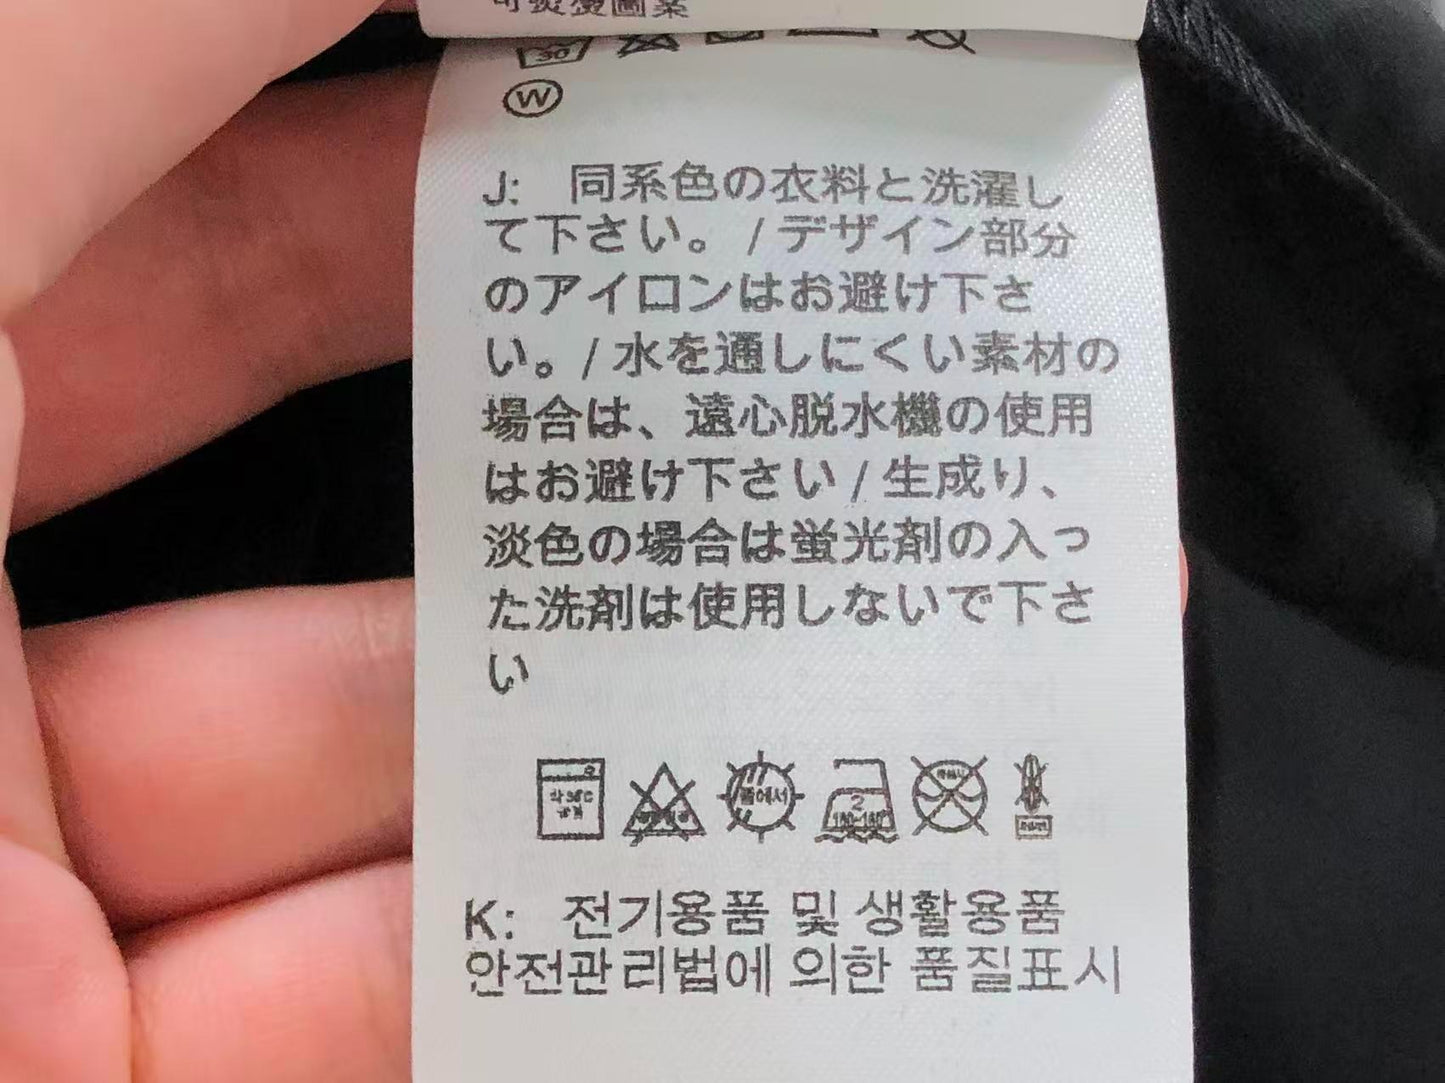 可熨燙圖案
30
W
J: 同系色の衣料と洗濯し
て下さい。/デザイン部分
のアイロンはお避け下さ
い。/水を通しにくい素材の
場合は、遠心脱水機の使用
はお避け下さい/生成り、
淡色の場合は蛍光剤の入っ
た洗剤は使用しないで下さ
い
2
K: 전기용품 및 생활용품
안전관리법에 의한 품질표시